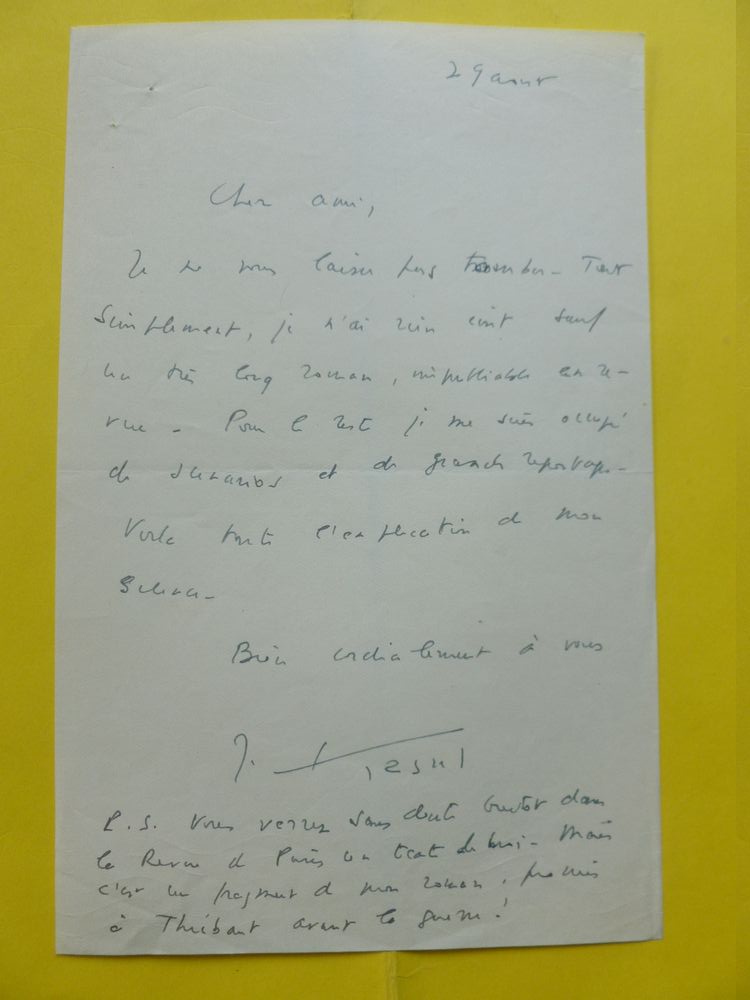 29 aout
Cher ami,
Je ne vous laisse pas tomber - Tout
simplement, je n'ai rien écrit sauf
un très long roman, impubliable en re-
vue - Pour le reste je me suis occupé
de scénarios et de grands reportages -
Voilà toute l'explication de mon
silence -
Bien cordialement à vous
J. Kessel
P.S. Vous verrez sans doute bientôt dans
la Revue de Paris un texte de moi - Mais
c'est un fragment de mon roman, promis
à Thiébaut avant la guerre !